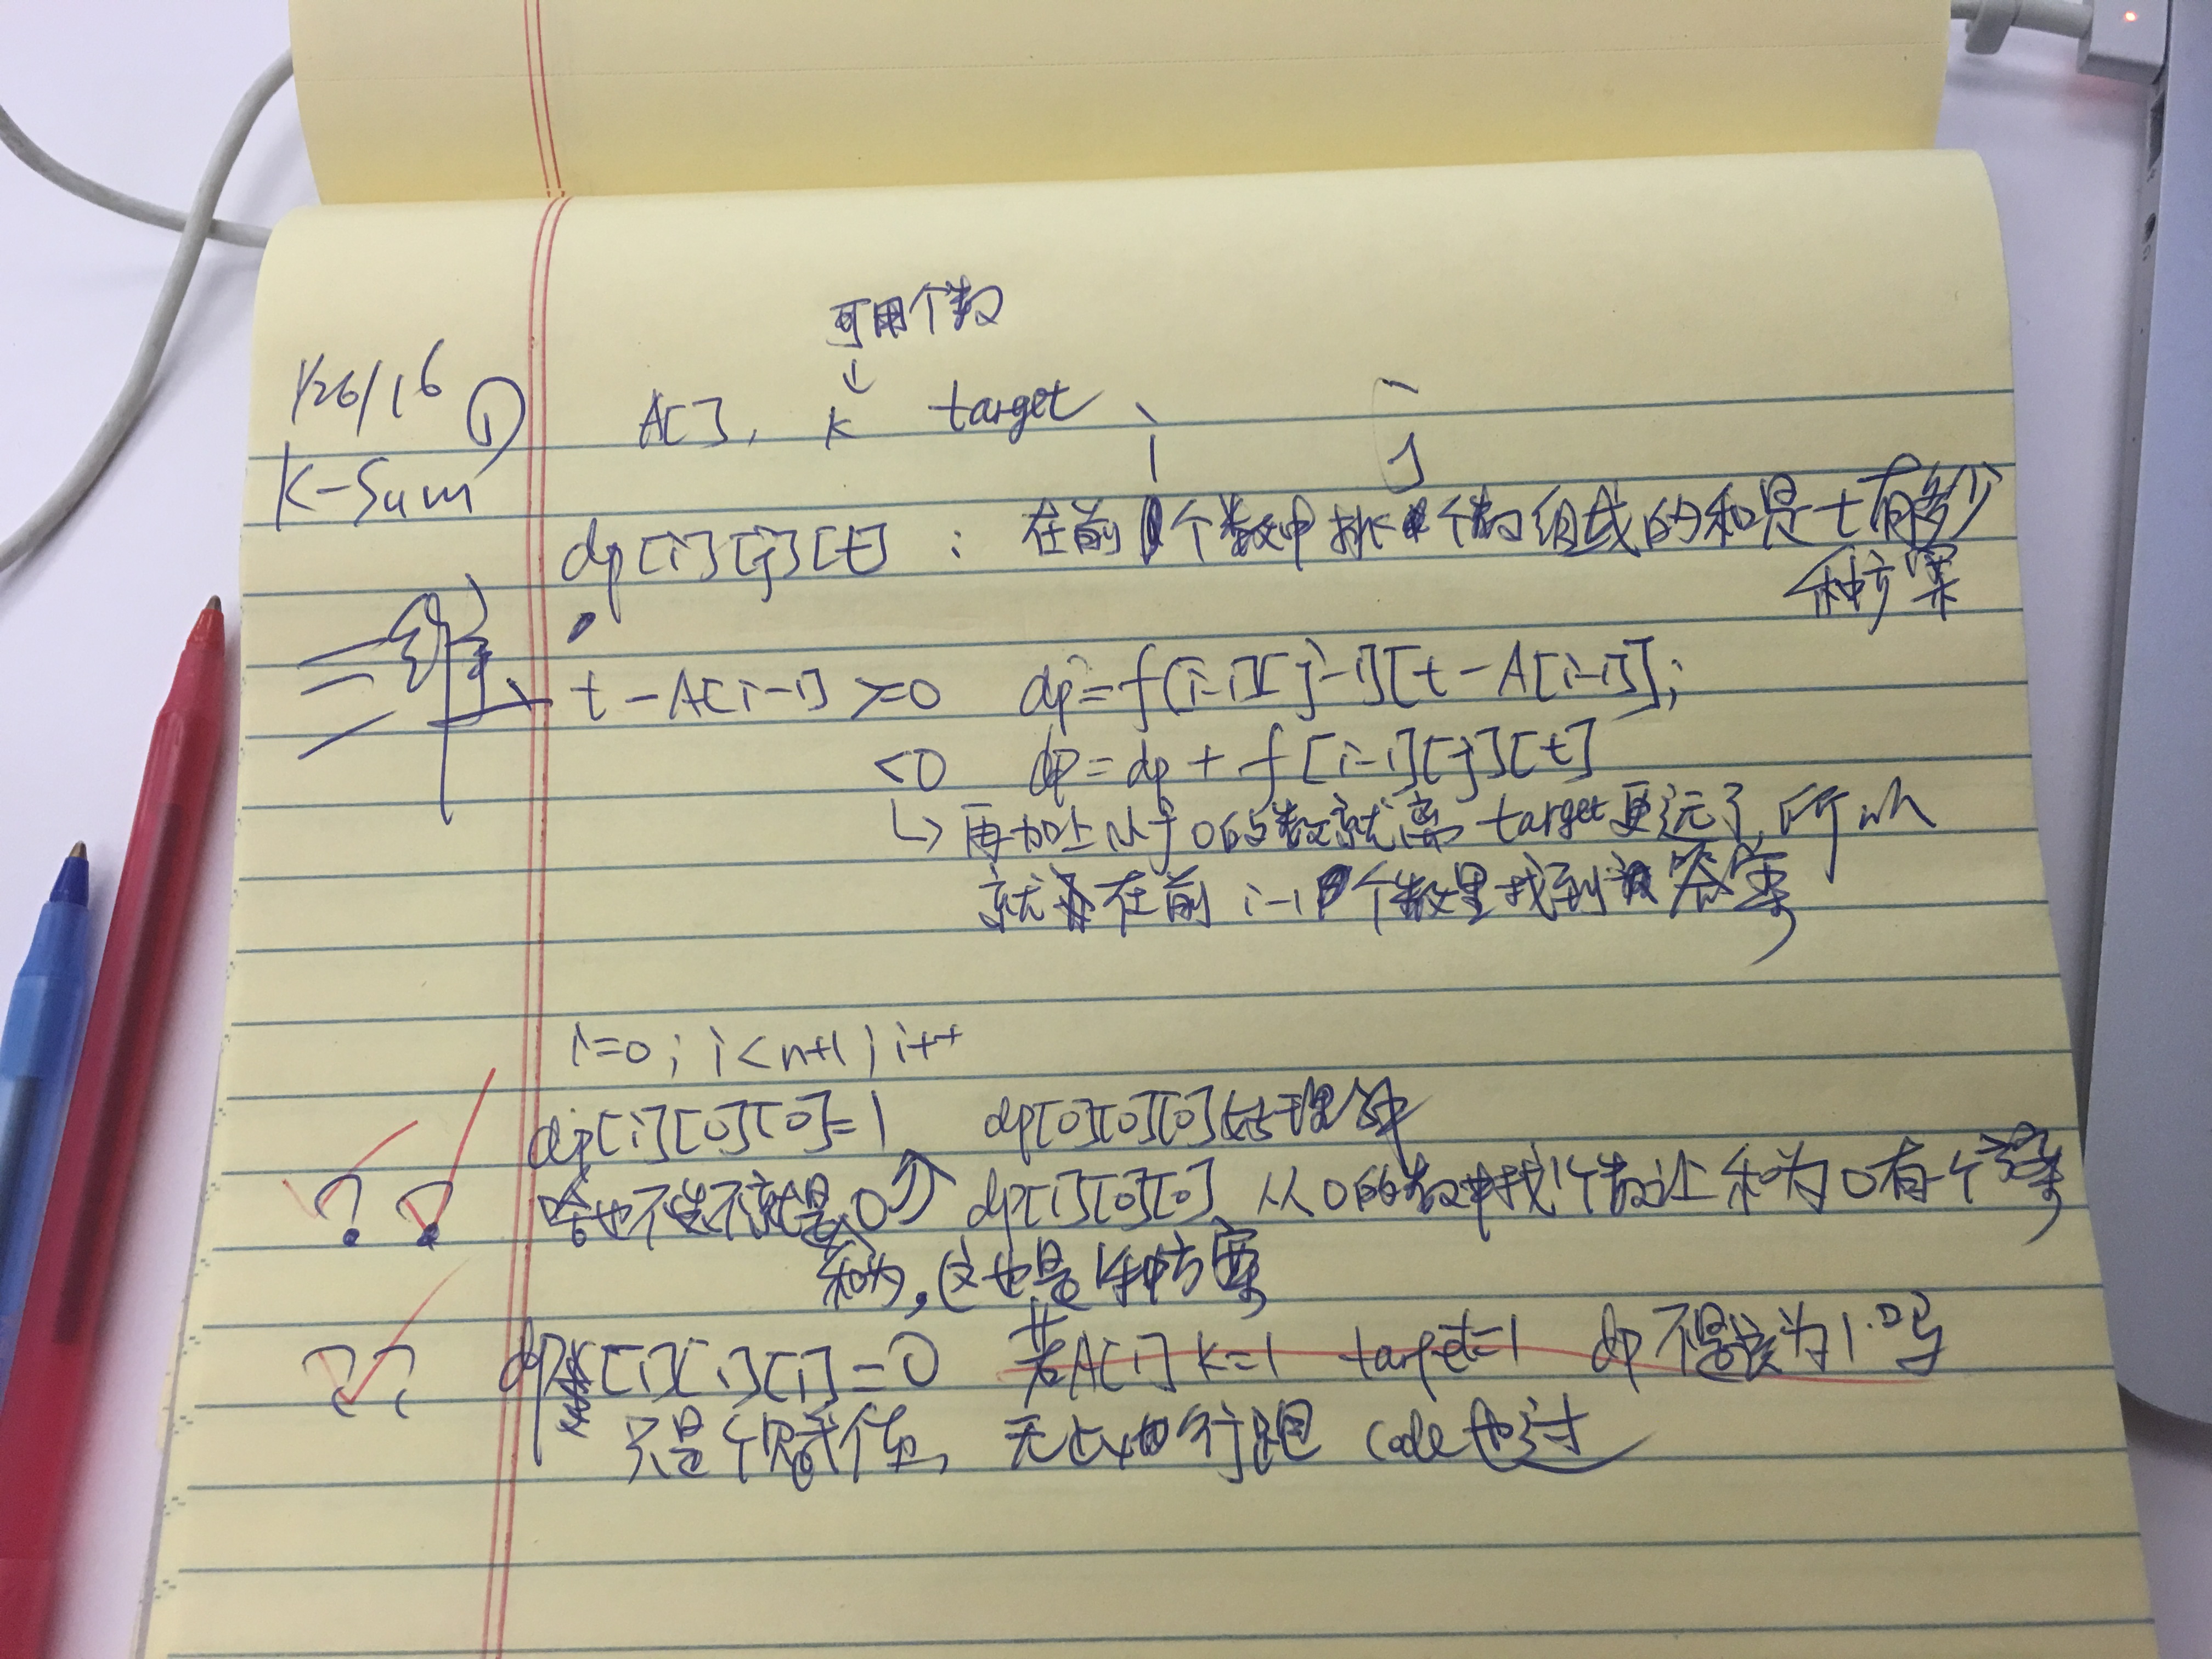 可用个数
↓
1/26/16 ① A[], k target
i j
K-Sum
dp[i][j][t] : 在前 个数中挑 个数组成的和是t有多少
种方案
三维
t-A[i-1] >=0 dp=f[i-1][j-1][t-A[i-1]];
<0 dp=dp+f[i-1][j][t]
↳ 再加上小于0的数就离target更远了,所以
就在前i-1个数里找到答案
i=0; i<n+1; i++
dp[i][0][0]=1 dp[0][0][0]
? ? 啥也不选不就是0个 dp[1][0][0] 从0的数中找1个数让和为0有个方案
和为,这也是1种方案
?? dp[i][i][i]=0 若A[i] k=1 target=1 dp不是该为1吗
只是个赋值, 无 行跑code也过